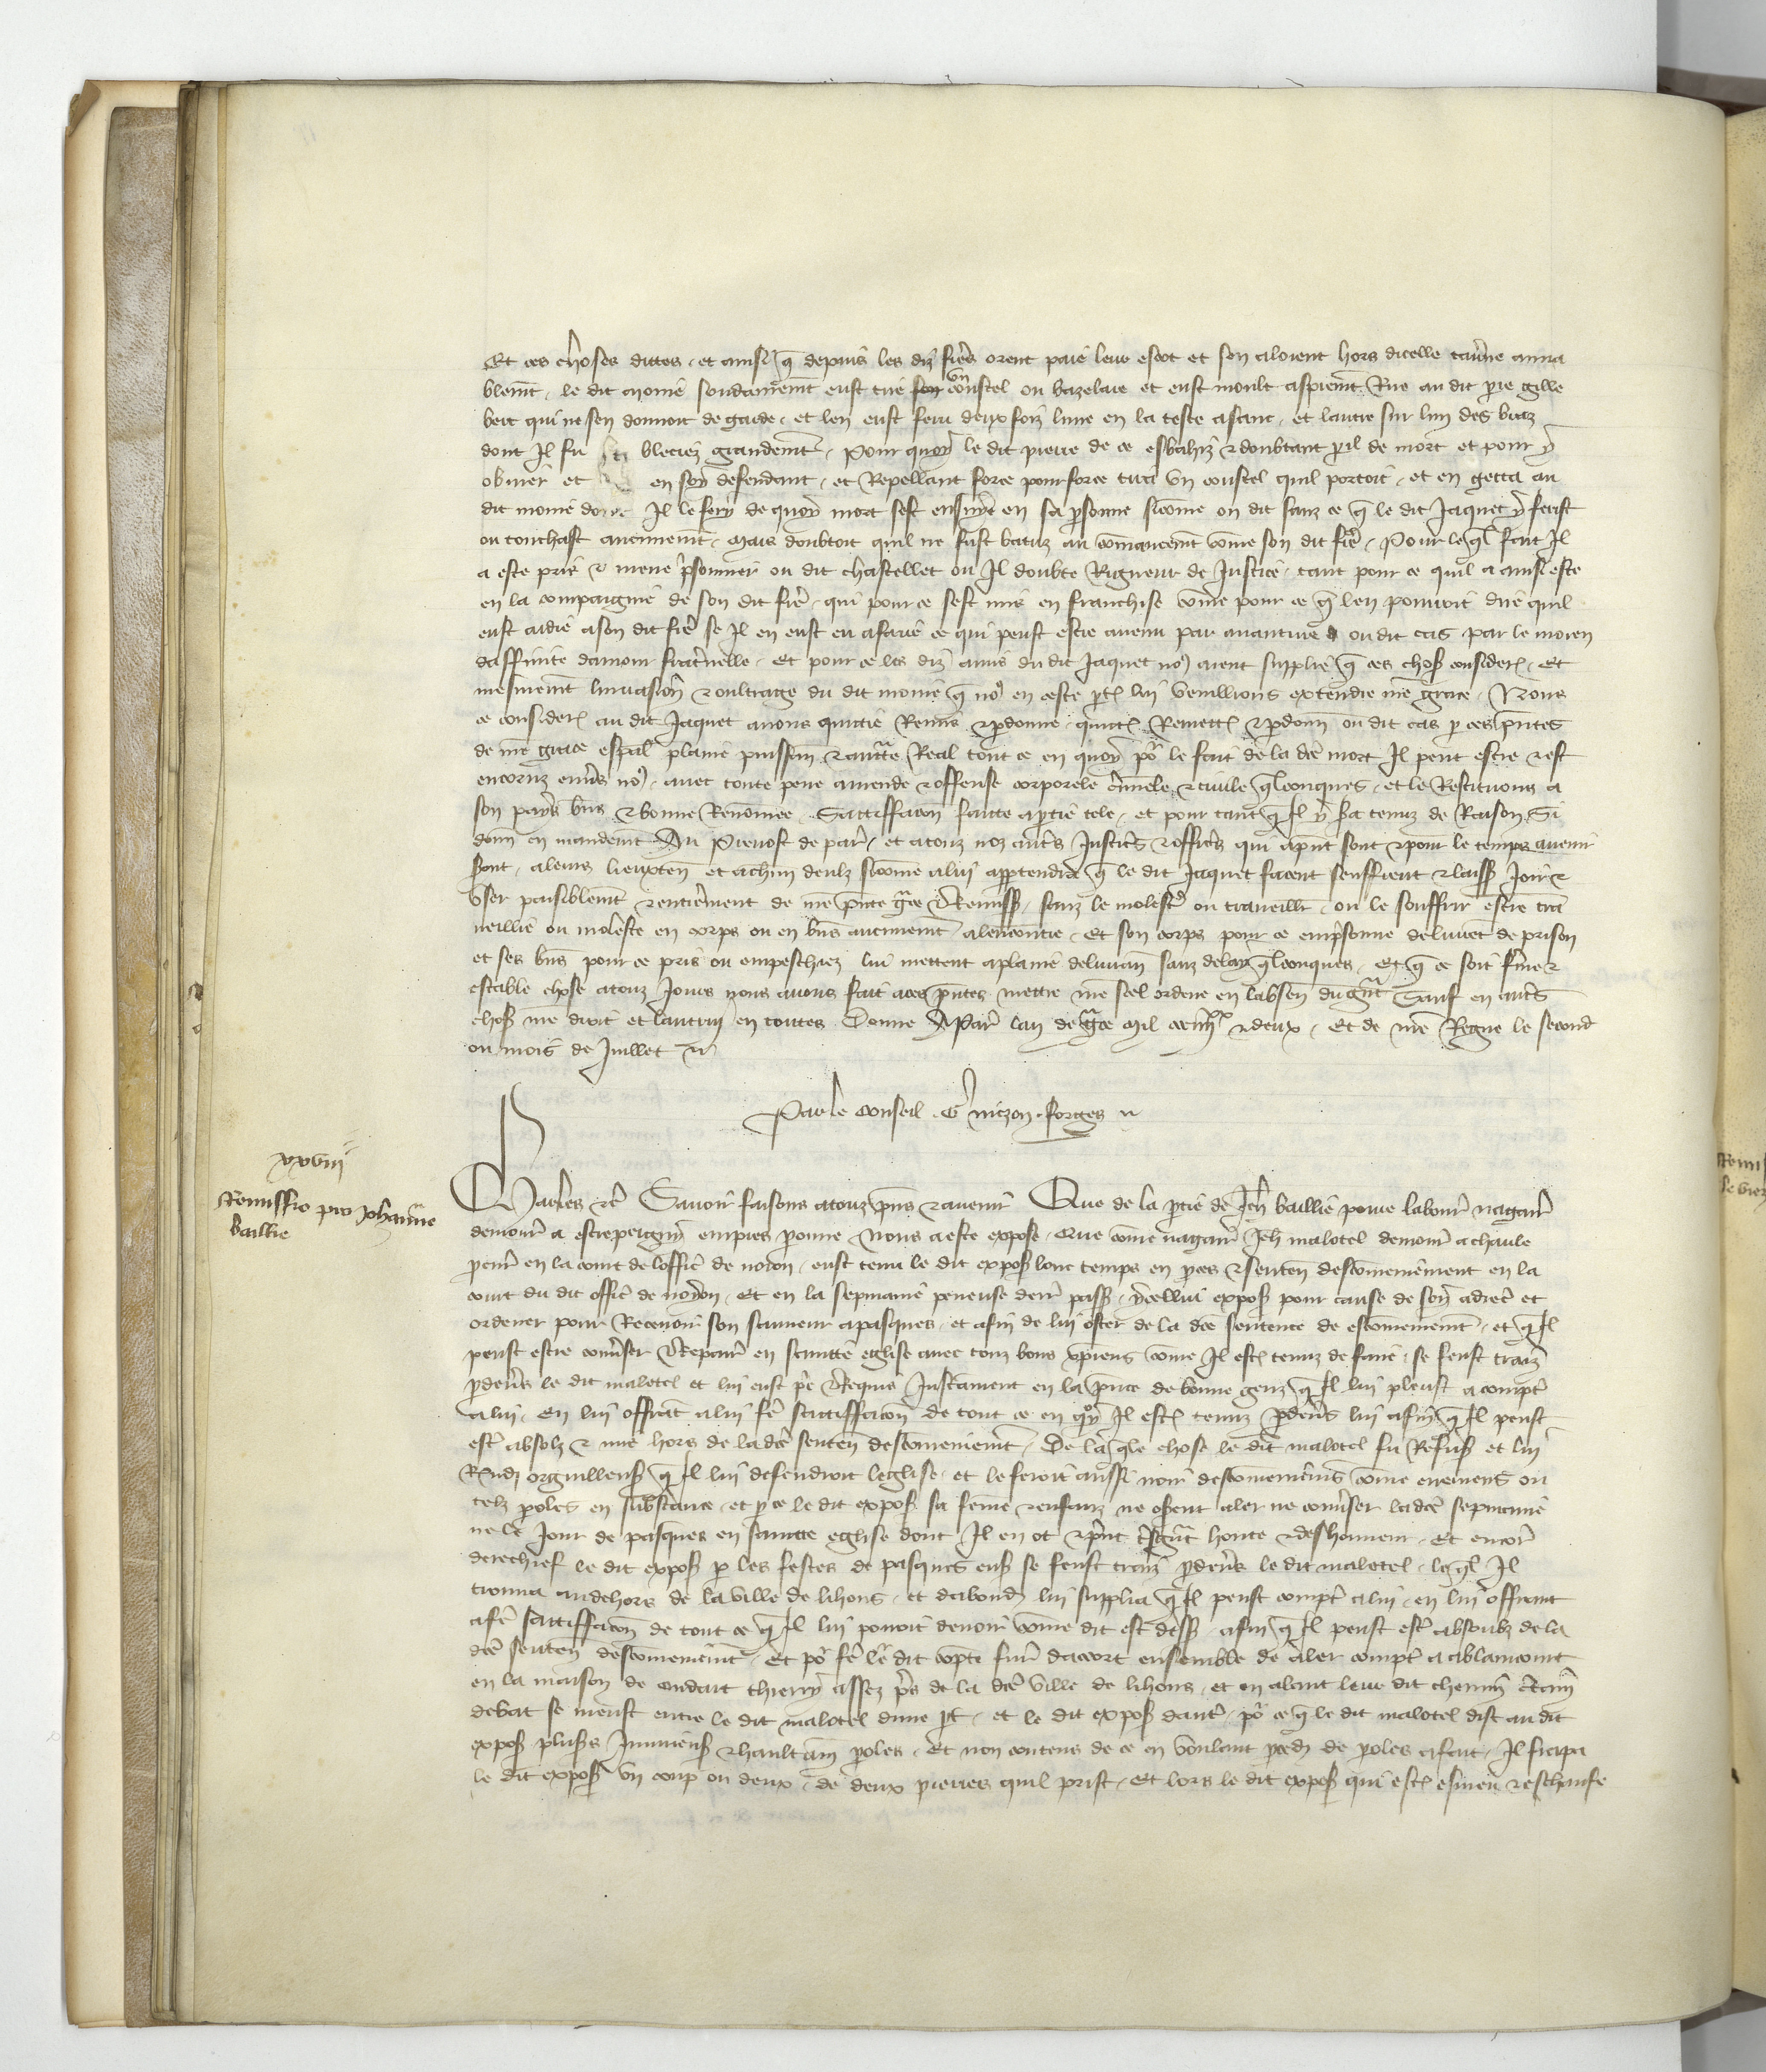 Et ces choses dittes, et ainsi q̃ depuis les diz fr̃es orent paié leur escot et sen aloient hors dicelle tav̾ne amia
blem̃t, le dit moine soudainem̃t eust trié un coustel ou bazelaire et eust moult asprem̃t Rué au dit p̾re gille
bert qui ne sen donnoit de garde, et len eust feru deux foiz lune en la teste a sanc, et lautre sur lun des braz
dont Il fu bleciez grandem̃t, Pour quoy le dit pierre de ce esbahiz ⁊ doubtant p̱il de mort et pour y
obvier et en soy defendant, et Repellant force pour force tira un coustel quil portoit, et en getta au
dit moine dont Il le fery de quoy mort sest ensuite en sa p̱sonne sicõme on dit sanz ce q̃ le dit Jaquet y feist
ou touchast aucunem̃t, Mais doubtoit quil ne fust batuz au cõmancem̃t cõme son dit fr̃e, Pour le q̃l fait Il
a esté pris ⁊ mené p̾sonnier ou dit chastellet ou Il doubte Rigueur de Justice, tant pour ce quil a ainsi esté
en la compaignie de son dit fr̃e, qui pour ce sest mis en franchise cõme pour ce q̃ len pourroit dire quil
eust aidié a son dit fr̃e se Il en eust eu afaire ce qui peust estre avenu par avanture ou dit cas par le moien
daffinité damour frat̾nelle, Et pour ce les diz amis du dit Jaquet noꝰ aient supplié q̃ ces choses consider̃, Et
mesmem̃t linvasion ⁊ oultrage du dit moine q̃ noꝰ en ceste p̱tie lui veuillions extendre nr̃e grace, Nous
ce consider̃ au dit Jaquet avons quittié Remis ⁊ p̱donné, quitt̃ Remett̃ ⁊ p̱donñ ou dit cas p̱ ces p̃ntes
de nr̃e grace esp̃al plaine puissan̄ ⁊ auct̃te Real tout ce en quoy po̾ le fait de la dc̃e mort Il peut estre ⁊ est
encoruz env̾s noꝰ, avec toute peine amende ⁊ offense corporele c̾minele ⁊ civile q̃lconques, et le Restituons a
son pays biens ⁊ bonne Renõmee, Sattiffac̃on faitte a p̱tie tele, et pour tant q̃ Il y sera tenuz de Raison Si
donñ en mandem̃t Au Prevost de paris, et a touz noz aut̾s Justic̾s ⁊ offic̾s qui a p̃nt sont ⁊ pour le temps avenir
seront, a leurs lieuxten̄ et a chũn deulx sicõme a lui app̱tendra q̃ le dit Jaquet facent seuffrent ⁊ laiss̃ Joir ⁊
user paisiblem̃t ⁊ entierement de nr̃e p̃nte gr̃ce ⁊ Remiss̃, sanz le molest̾ ou traveillr̃, ou le souffrir estre tra
veillié ou molesté en corps ou en biens aucunem̃t alencontre, Et son corps pour ce emp̾sonné delivrent de prison
et ses biens pour ce pris ou empeschiez lui mettent a plaine delivran̄ sanz delay q̃lconques, Et q̃ ce soit ferme ⁊
estable chose a touz jours nous avons fait a ces p̃ntes mettre nr̃e seel ordené en labsen̄ du gr̃nt Sauf en aut̾s
choses nr̃e droit et lautruy en toutes Donné A Paris lan de gr̃ce Mil ccc iiii xx ⁊ deux, Et de nr̃e Regne le second
ou mois de Juillet
Par le conseil . G . nizon . forges
xxviii
Remissio pro Johanne
baillie
Charles ⁊c̃ Savoir faisons a touz p̃ns ⁊ avenir Que de la p̱tie de Jeh̃ baillie povre labour̃ nagair̃
demour̃ a estrepeigny empres p̱onne, Nous a esté exposé, Que cõme nagair̃ Jeh̃ malotel demour̃ a chaule
p̱cur̃ en la court de loffic̾ de noion, eust tenu le dit exposant lonc temps en p̱ces ⁊ senten̄ descõmeniement en la
court du dit offic̾ de noyon, Et en la sepmaine peneuse derr̃ pass̃, ycellui exposant pour cause de soy adrec̾ et
ordener pour Recevoir son sauveur a pasques, et afin de lui oster de la dc̃e sentence de escõmeniem̃t, et q̃ Il
peust estre conv̾ser ⁊ Repair̃ en saintte eglise avec touz bons xp̃iens cõme Il estoit tenuz de faire, se feust traiz
p̱dev̾s le dit malotel et lui eust p̾é ⁊ Requis Instãment en la p̃nce de bonne genz q̃ Il lui pleust a compt̾
a lui, En lui offrãt a lui fe̾ sattiffac̃on de tout ce en quoy Il estoit tenuz p̱dev̾s lui afin q̃ Il peust
est̾ absolz ⁊ mis hors de la dc̃e senten̄ descõmeniem̃t, De la q̃le chose le dit malotel fu Refusant et lui
Rñdi orguilleus̃ q̃ Il lui defendroit leglise, et le feroit aussi noir descõmeniem̃s cõme
telz p̱oles en substance, et p̱ ce le dit exposant sa femme ⁊ enfanz ne oserent aler ne conv̾ser la dc̃e sepmaine
ne le Jour de pasques en saintte eglise dont Il en ot ⁊ p̾nt t̾sgr̃nt honte ⁊ deshonneur, Et encor̃
derechief le dit exposant p̱ les festes de pasques ens̃ se feust traiz p̱dev̾s le dit malotel, leq̃l Il
trouva au dehors de la ville de lihons, et dabond̃ lui supplia q̃ Il peust compt̾ a lui, en lui offrant
a fe̾ sattiffac̃on de tout ce q̃ Il lui povoit devoir cõme dit est dess̃, afin q̃ Il peust est̾ absoubz de la
dc̃e senten̄ descõmeniem̃t, Et po̾ fe̾ le dit compte furẽt dacort ensemble de aler compt̾ a ablaincourt
en la maison de oudart thierry assez p̾s de la dc̃e ville de lihons, et en alant leur dit chemin c̾tain
debat se meust entre le dit malotel dune p̱t, et le dit exposant daut̾, po̾ ce q̃ le dit malotel dist au dit
exposant plus̃s Inniurieus̃ ⁊ haultain̄ p̱oles, Et non contens de ce en voulant p̱ced̃ de p̱oles a fait, Il frapa
le dit exposant un coup ou deux, de deux pierres quil prist, Et lors le dit exposant qui estoit esmeu ⁊ eschaufé